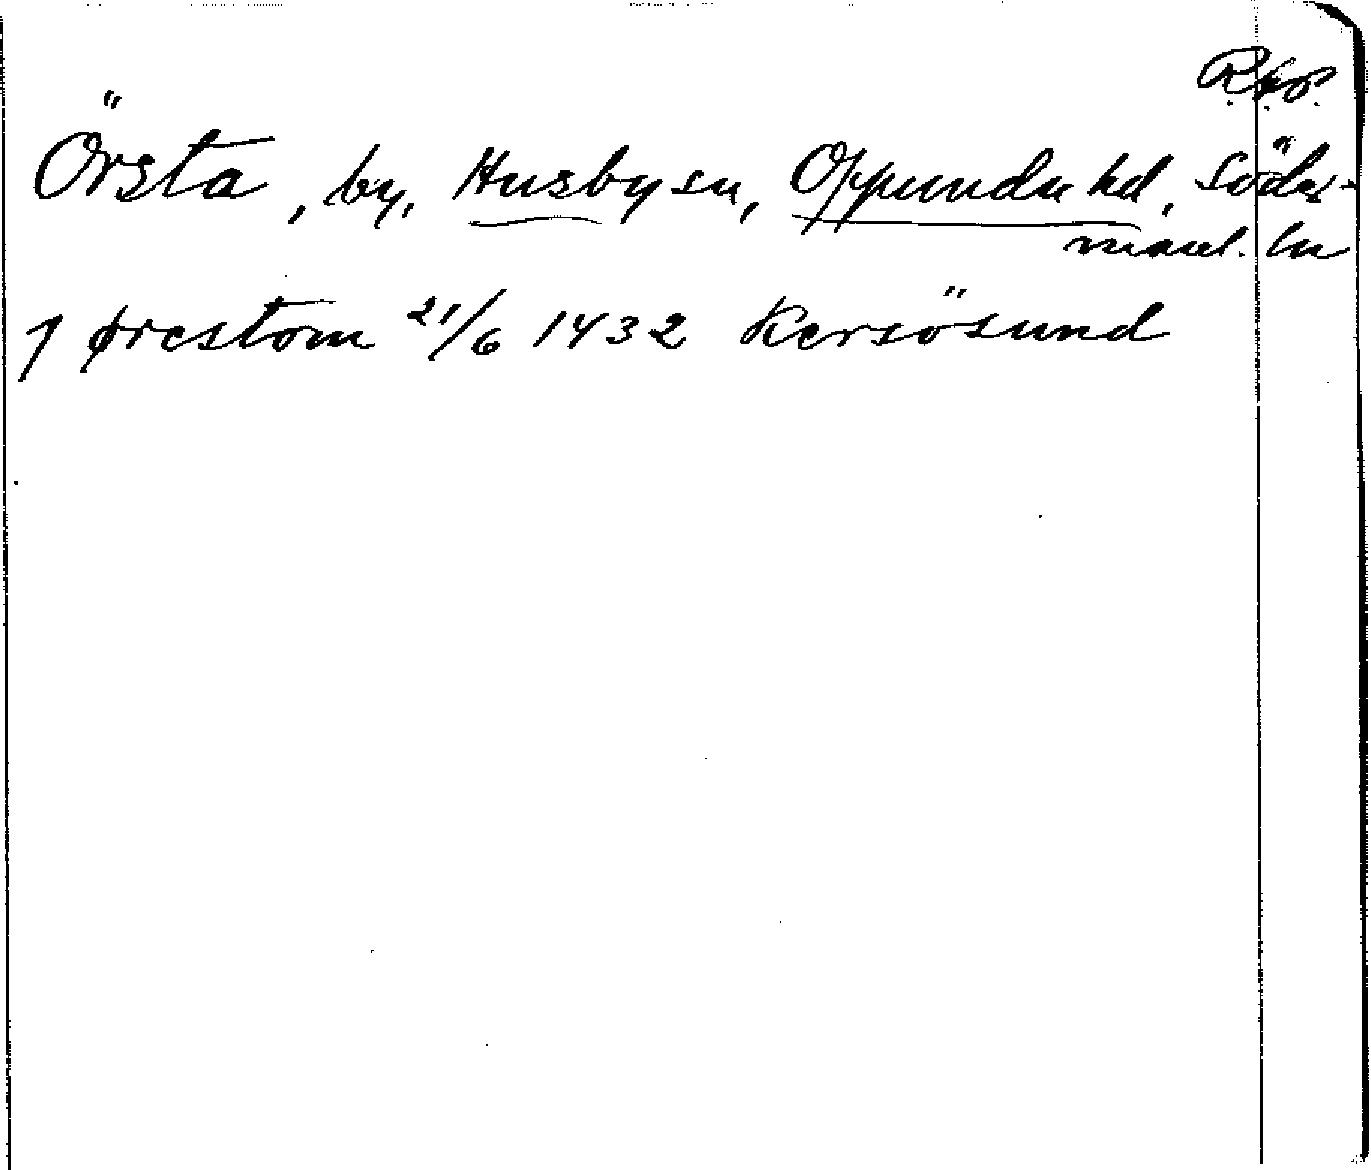 Rkp.
Örsta, by, Husby sn, Oppunda hd, Söder-
manl. ln
J ørestom 21/6 1432 Kersösund